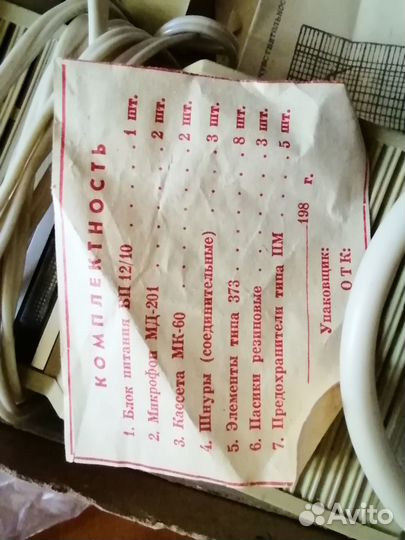 КОМПЛЕКТНОСТЬ
1. Блок питания БП 12/10 . . . 1 шт.
2. Микрофон МД-201 . . . . . 2 шт.
3. Кассета МК-60 . . . . . . 2 шт.
4. Шнуры (соединительные) . . . 3 шт.
5. Элементы типа 373 . . . . . 8 шт.
6. Пасики резиновые . . . . . 3 шт.
7. Предохранители типа ПМ . . . 5 шт.
198 г.
Упаковщик:
ОТК:
Avito